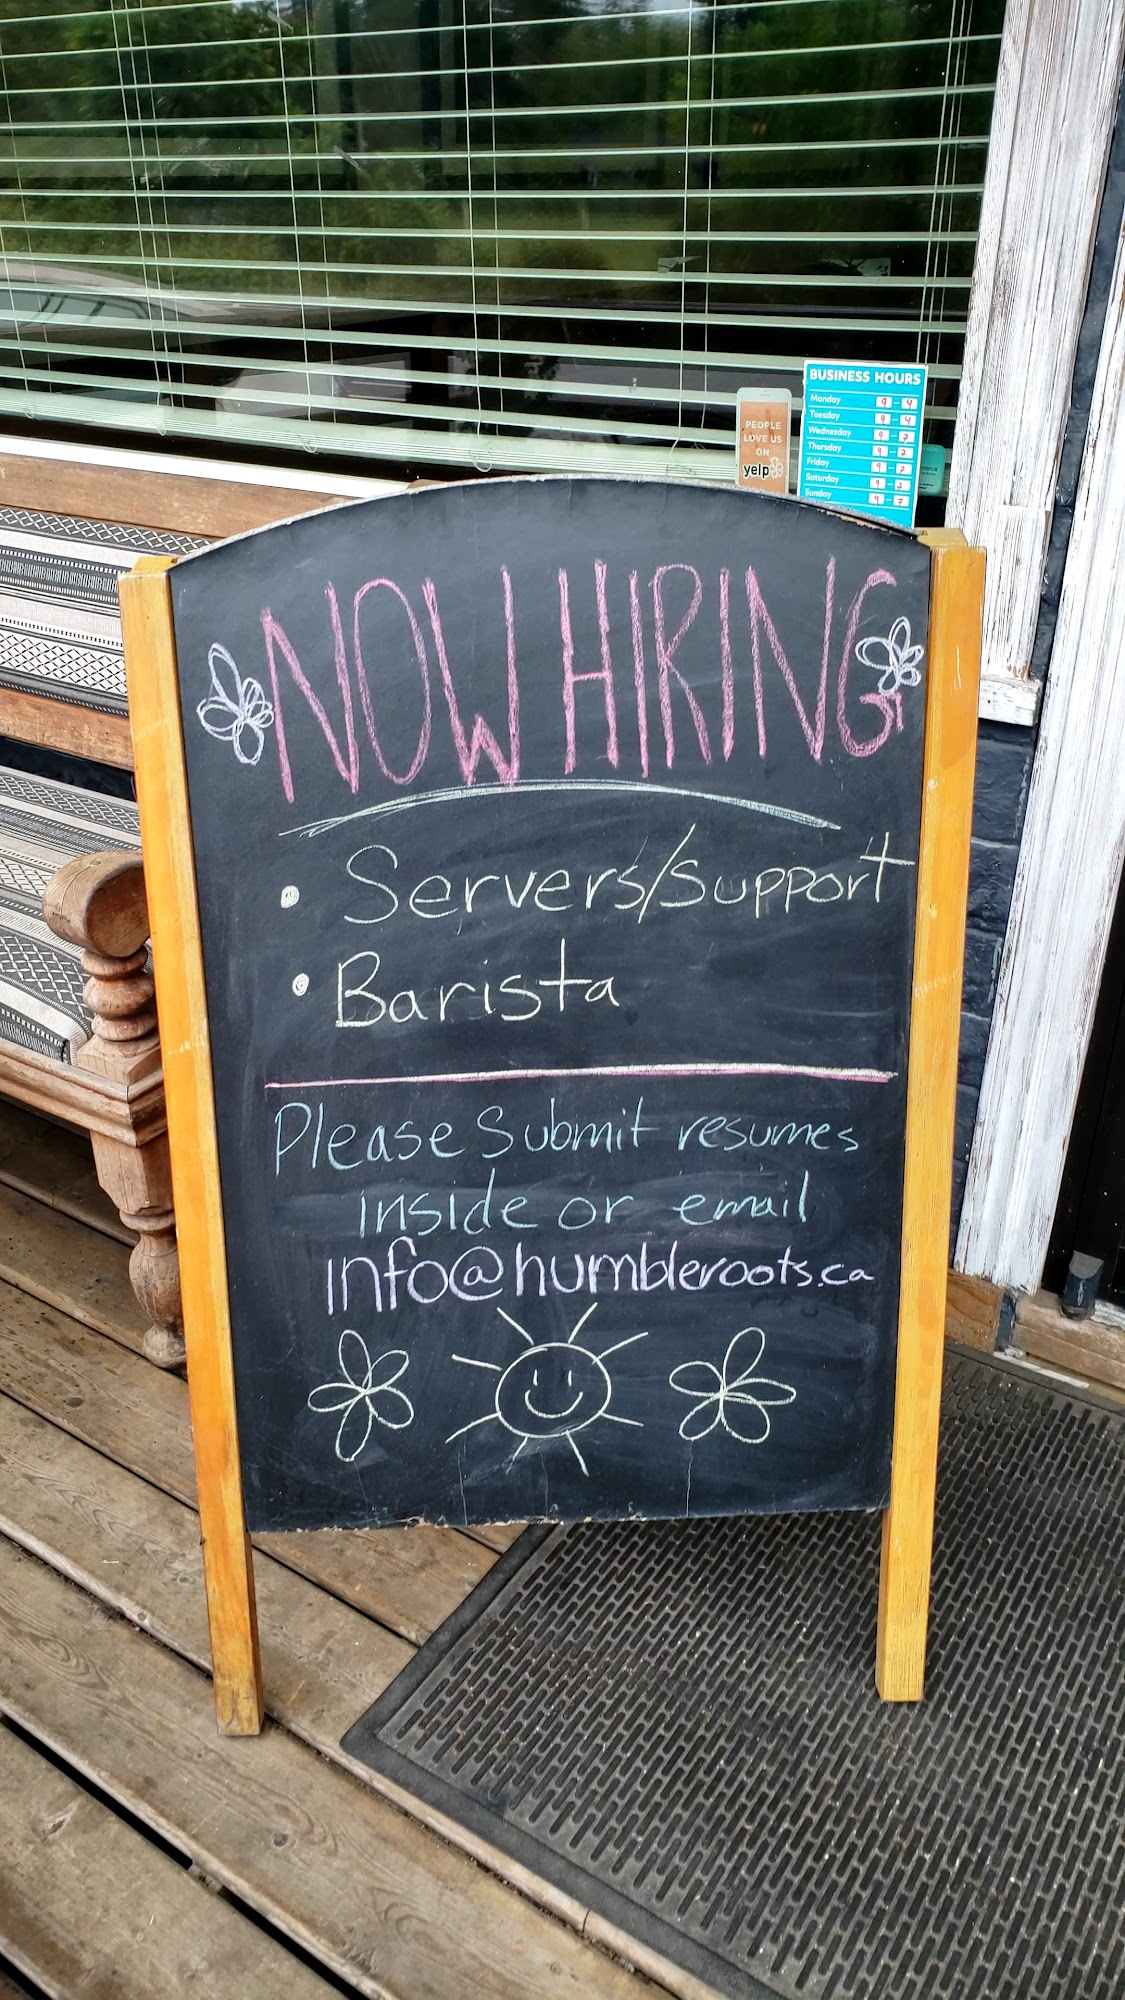 BUSINESS HOURS
Monday 9 - 4
Tuesday 9 - 4
Wednesday 9 - 7
Thursday 9 - 7
Friday 9 - 7
Saturday 9 - 7
Sunday 9 - 7
PEOPLE
LOVE US
ON
yelp
NOW HIRING
• Servers/support
• Barista
Please Submit resumes
inside or email
info@humbleroots.ca